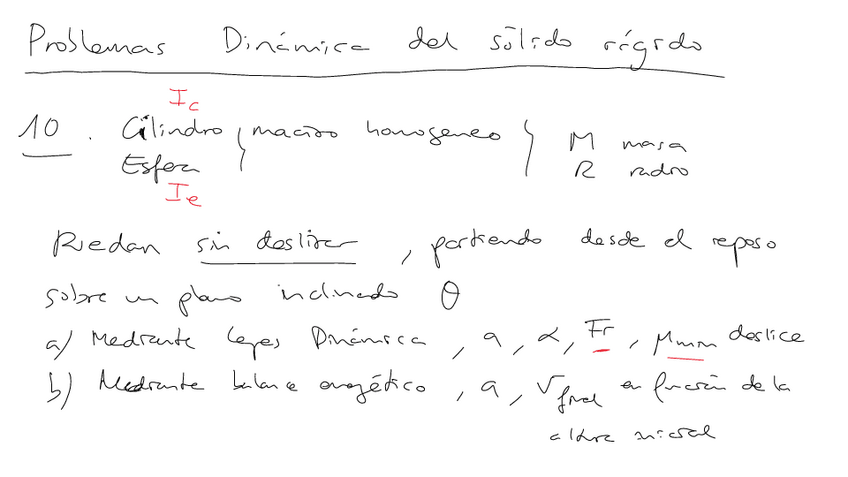 Problemas Dinámica del sólido rígido
I_c
10. Cilindro } macizo homogeneo } M masa
Esfera R radio
I_e
Ruedan sin deslizar, partiendo desde el reposo
sobre un plano inclinado θ
a) Mediante leyes Dinámica, a, α, Fr, μmin deslice
b) Mediante balance energético, a, Vfinal en función de la
altura inicial